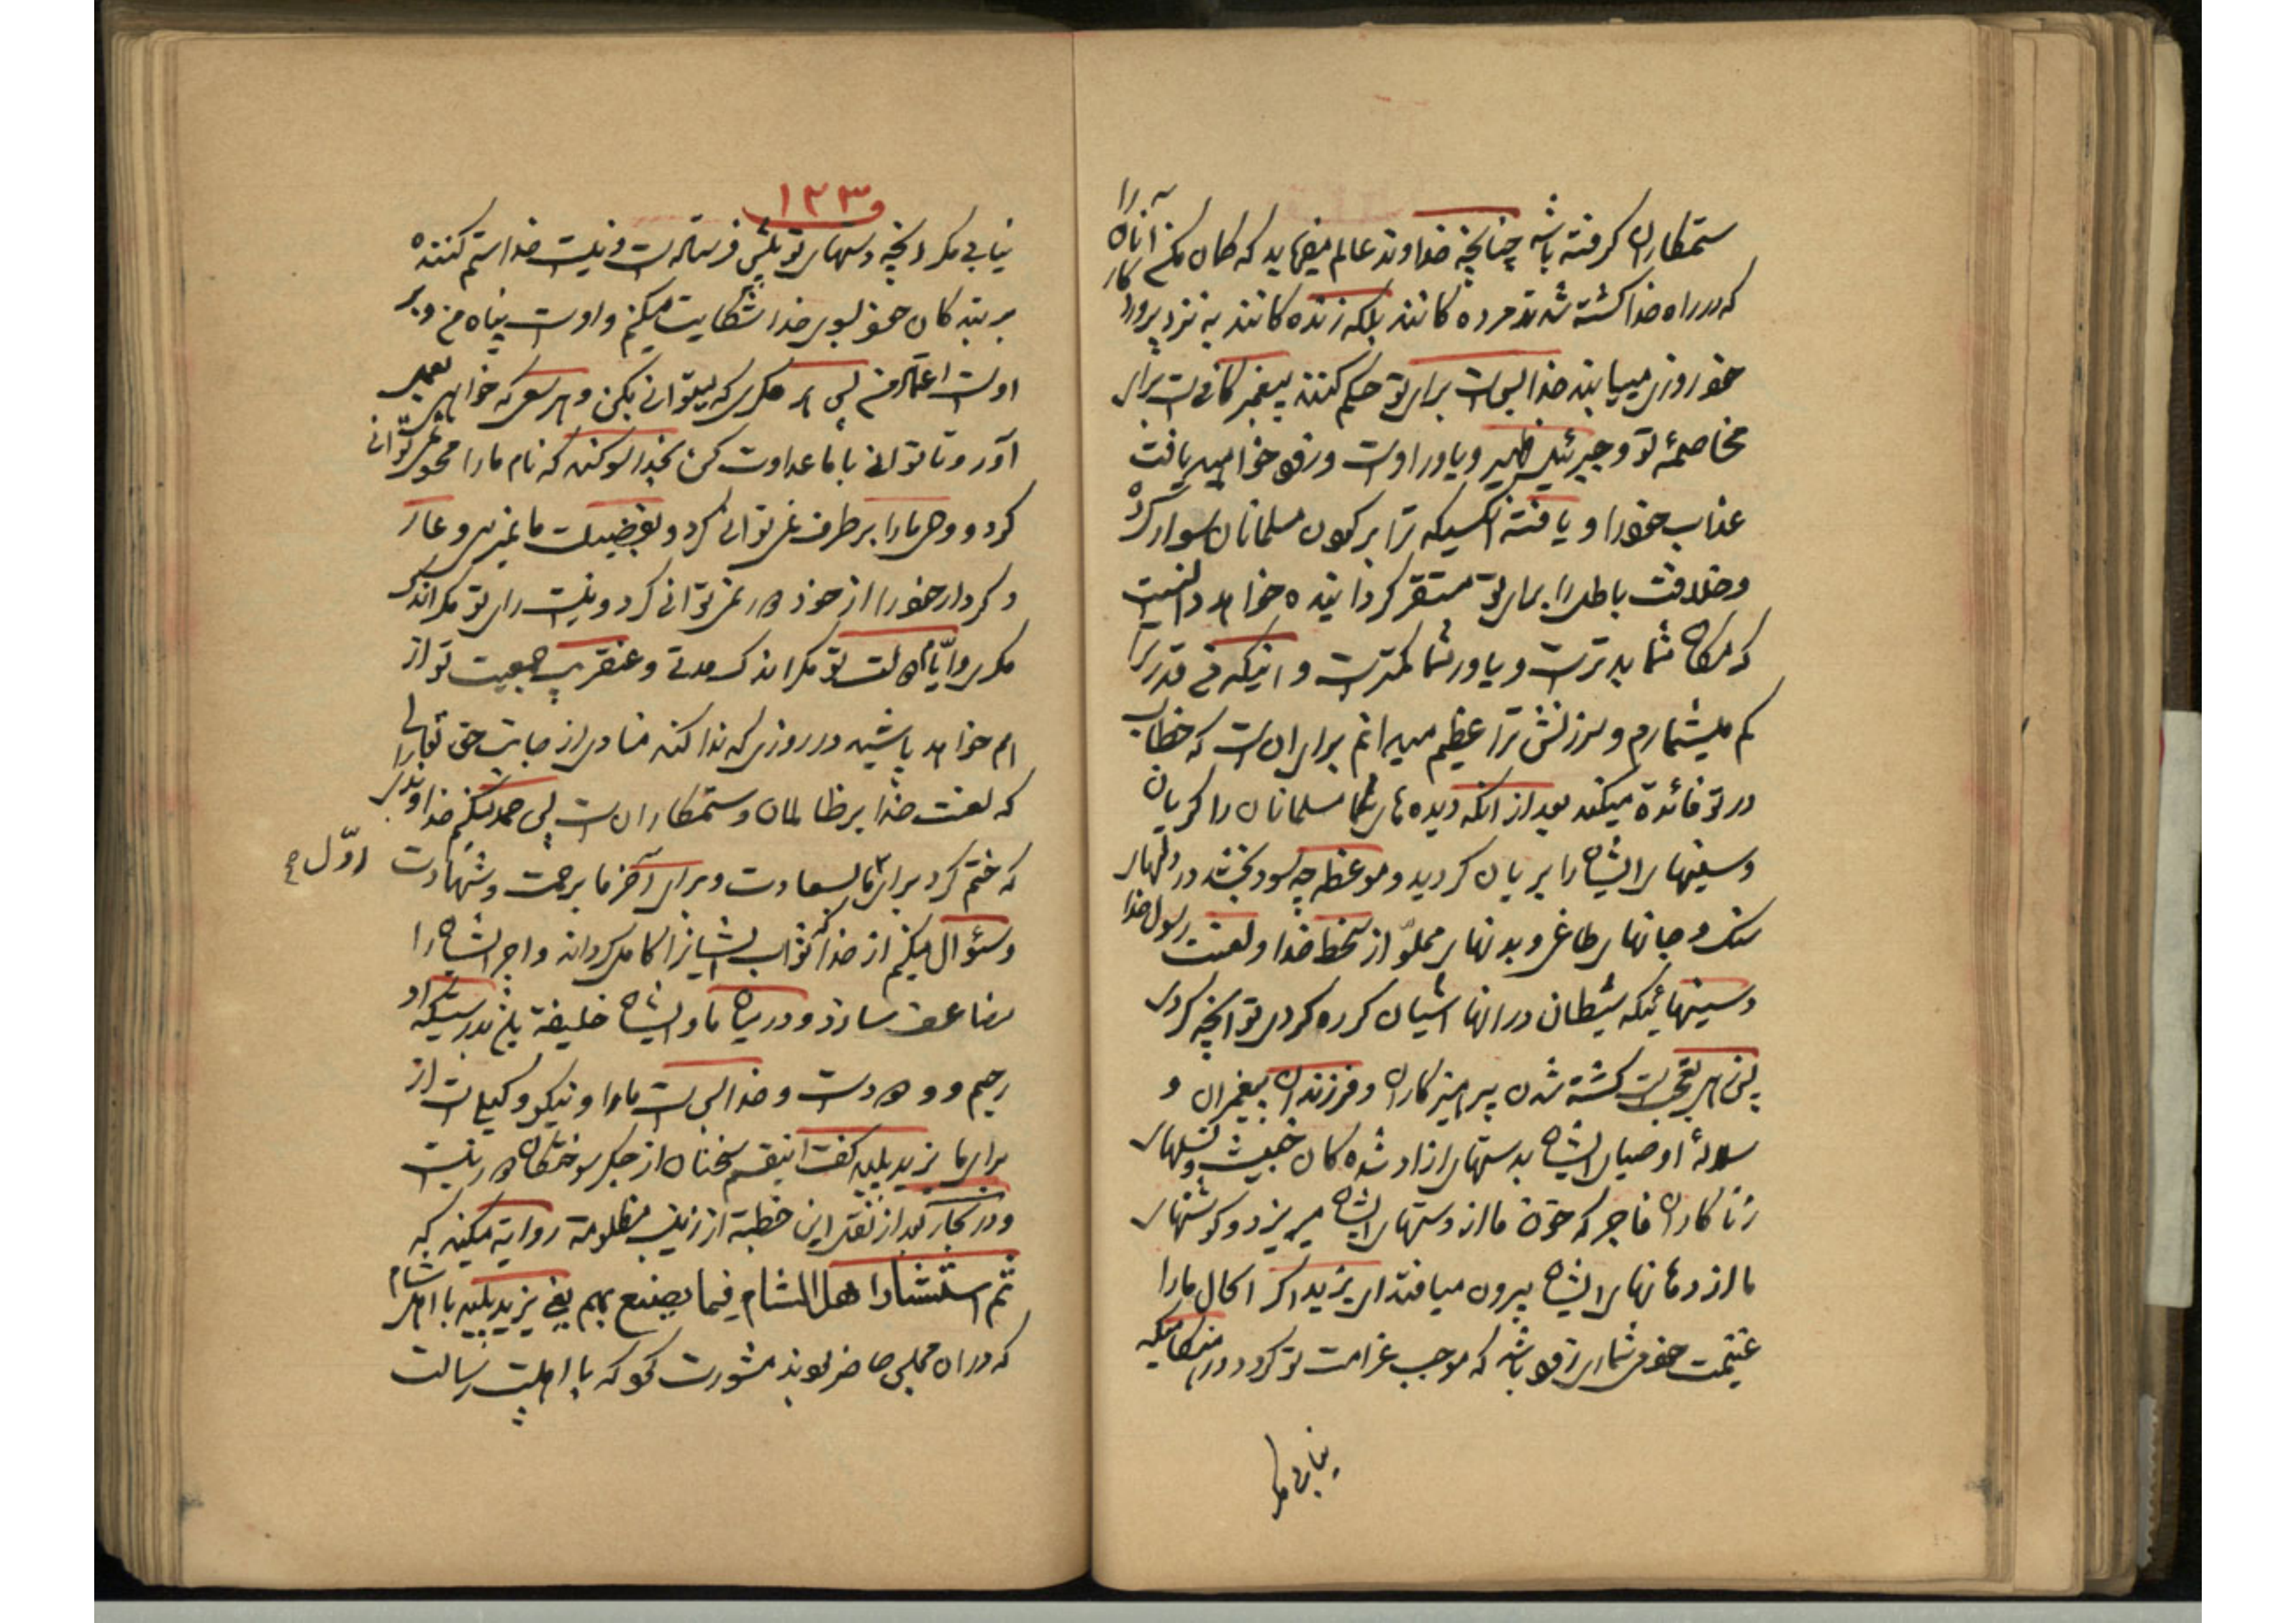 ستمکاران گرفته باشد چنانچه خداوند عالم میفرماید که کمان مکنم آنان را
که در راه خدا کشته شدند مرده کانند بلکه زنده کانند به نزد پروردکار
خود روزی مییابند خدا بس است برای تو حکم کننده پیغمبر کافی است برای
مخاصمهٔ تو و جبرئیل ظهیر و یاور اوست و زود خواهید یافت
عذاب خود را و یافته آنکسیکه ترا بر کردن مسلمانان سوار کرده
و خلافت باطل را برای تو مستقر کردانیده خواهد دانست
که مکان شما بدتر است و یاور شما کمتر است و اینکه من قدر ترا
کم میشمارم و سرزنش ترا عظیم میدانم برای آن است که خطاب
در تو فائدة میکند بعد از انکه دیده های مسلمانان را کریان
و سینهای ایشان را بریان کردید و موعظه چه سود بخشد در دلهای
سنک و جانهای طاغی و بدنهای مملوّ از سخط خدا و لعنت رسول خدا
و سینهائیکه شیطان در انها اشیان کرده کردی تو انچه کردی
پس بسی تعجب است کشته شدن پرهیزکاران و فرزندان پیغمبران و
سلالهٔ اوصیای ایشان بدستهای ازاد شده کان خبیث و نسلهای
زناکاران فاجر که خون ما از دستهای ایشان میریزد و کوشتهای
ما از دهانهای ایشان بیرون میافتد ای یزید اکر احال ما را
غنیمت خود میشماری زود باشد که موجب غرامت تو کردد در هنکامیکه
نیابی مکر
۱۳۳
نیابی مکر انچه دستهای تو پیش فرستاده است و نیست خدا ستم کننده
بر بندکان خود بسوی خدا شکایت میکنم و اوست پناه من و بر
اوست اعتماد من پس هر مکری که میتوانی بکن و هر سعی که خواهی بعمل
آور و تا توانی با ما عداوت کن بخدا سوکند که نام ما را محو نمی توانی
کرد و وحی ما را برطرف نمی توانی کرد و بفضیلت ما نمیرسی و عار
کردار خود را از خود دور نمی توانی کرد و نیست رای تو مکر اندک
مکر و ایّام دولت تو مکر اندک مدتی و عنقریب جمعیت تو از
هم خواهد پاشید در روزی که ندا کند منادی از جانب حق تعالی
که لعنت خدا بر ظالمان و ستمکاران است پس حمد میکنم خداوندیرا
که ختم کرد برای اوّل ما بسعادت و برای آخر ما برحمت و شهادت
و سئوال میکنم از خدا که ثواب ایشانرا کامل کرداند و اجر ایشان را
مضاعف سازد و در میان ما و ایشان خلیفة باشد بدرستیکه او
رحیم و ودود است و خدا بس است ما را و نیکو وکیل است از
برای ما یزید پلید کفت اینقسم سخنان از جکر سوختکان دور نیست
و در بحار بعد از نقل این خطبة از زینب مظلومة روایة میکند که
ثم استشار اهل الشام فیما یصنع بهم یعنی یزید پلید با اهل شام
که در ان مجلس حاضر بودند مشورت نمود که با اهلبیت رسالت